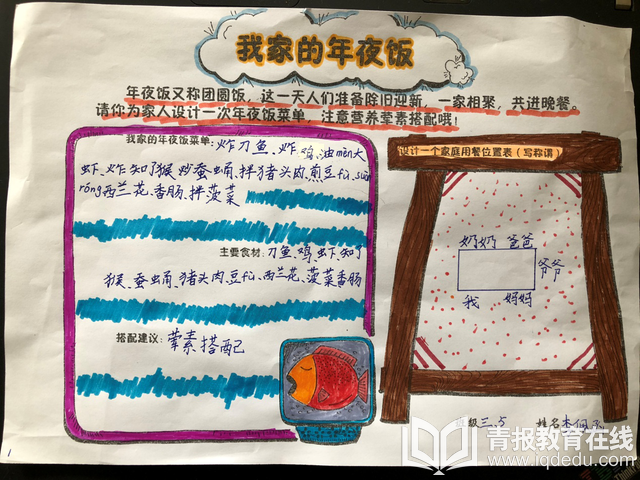 我家的年夜饭
年夜饭又称团圆饭，这一天人们准备除旧迎新，一家相聚，共进晚餐。
请你为家人设计一次年夜饭菜单，注意营养荤素搭配哦！
我家的年夜饭菜单：炸刀鱼、炸鸡、油mèn大
虾、炸知了猴、炒蚕蛹、拌猪头肉、煎豆fǔ、suàn
róng西兰花、香肠、拌菠菜
主要食材：刀鱼、鸡、虾、知了
猴、蚕蛹、猪头肉、豆fǔ、西兰花、菠菜香肠
搭配建议：荤素搭配
设计一个家庭用餐位置表（写称谓）
奶奶 爸爸
爷爷
我 妈妈
班级 三.5 姓名 李佩
青报教育在线
www.iqdedu.com
1